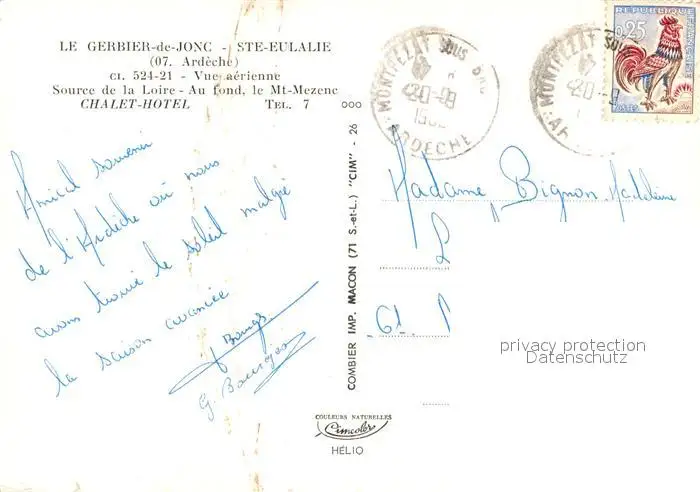 LE GERBIER-de-JONC - STE-EULALIE
(07. Ardèche)
CI. 524-21 - Vue aérienne
Source de la Loire - Au fond, le Mt-Mezenc
CHALET-HOTEL TEL. 7
Amical souvenir
de l'Ardèche où nous
avons trouvé le soleil malgré
la saison avancée
G. Bourges
COMBIER IMP. MACON (71 S.-et-L.) "CIM" - 26
COULEURS NATURELLES
Cimcolor
HÉLIO
MONTPEZAT SOUS
ARDECHE
MONTPEZAT SOUS
REPUBLIQUE
FRANÇAISE
0,25
POSTES
Madame Bignon Madeleine
61
privacy protection
Datenschutz